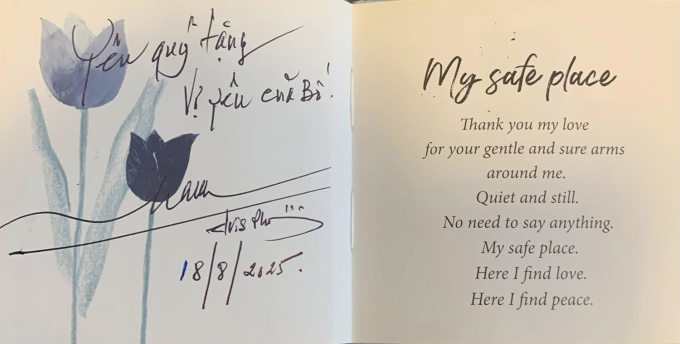 Yêu quý tặng
Vị yêu của Bố!
18/8/2025.
My safe place
Thank you my love
for your gentle and sure arms
around me.
Quiet and still.
No need to say anything.
My safe place.
Here I find love.
Here I find peace.